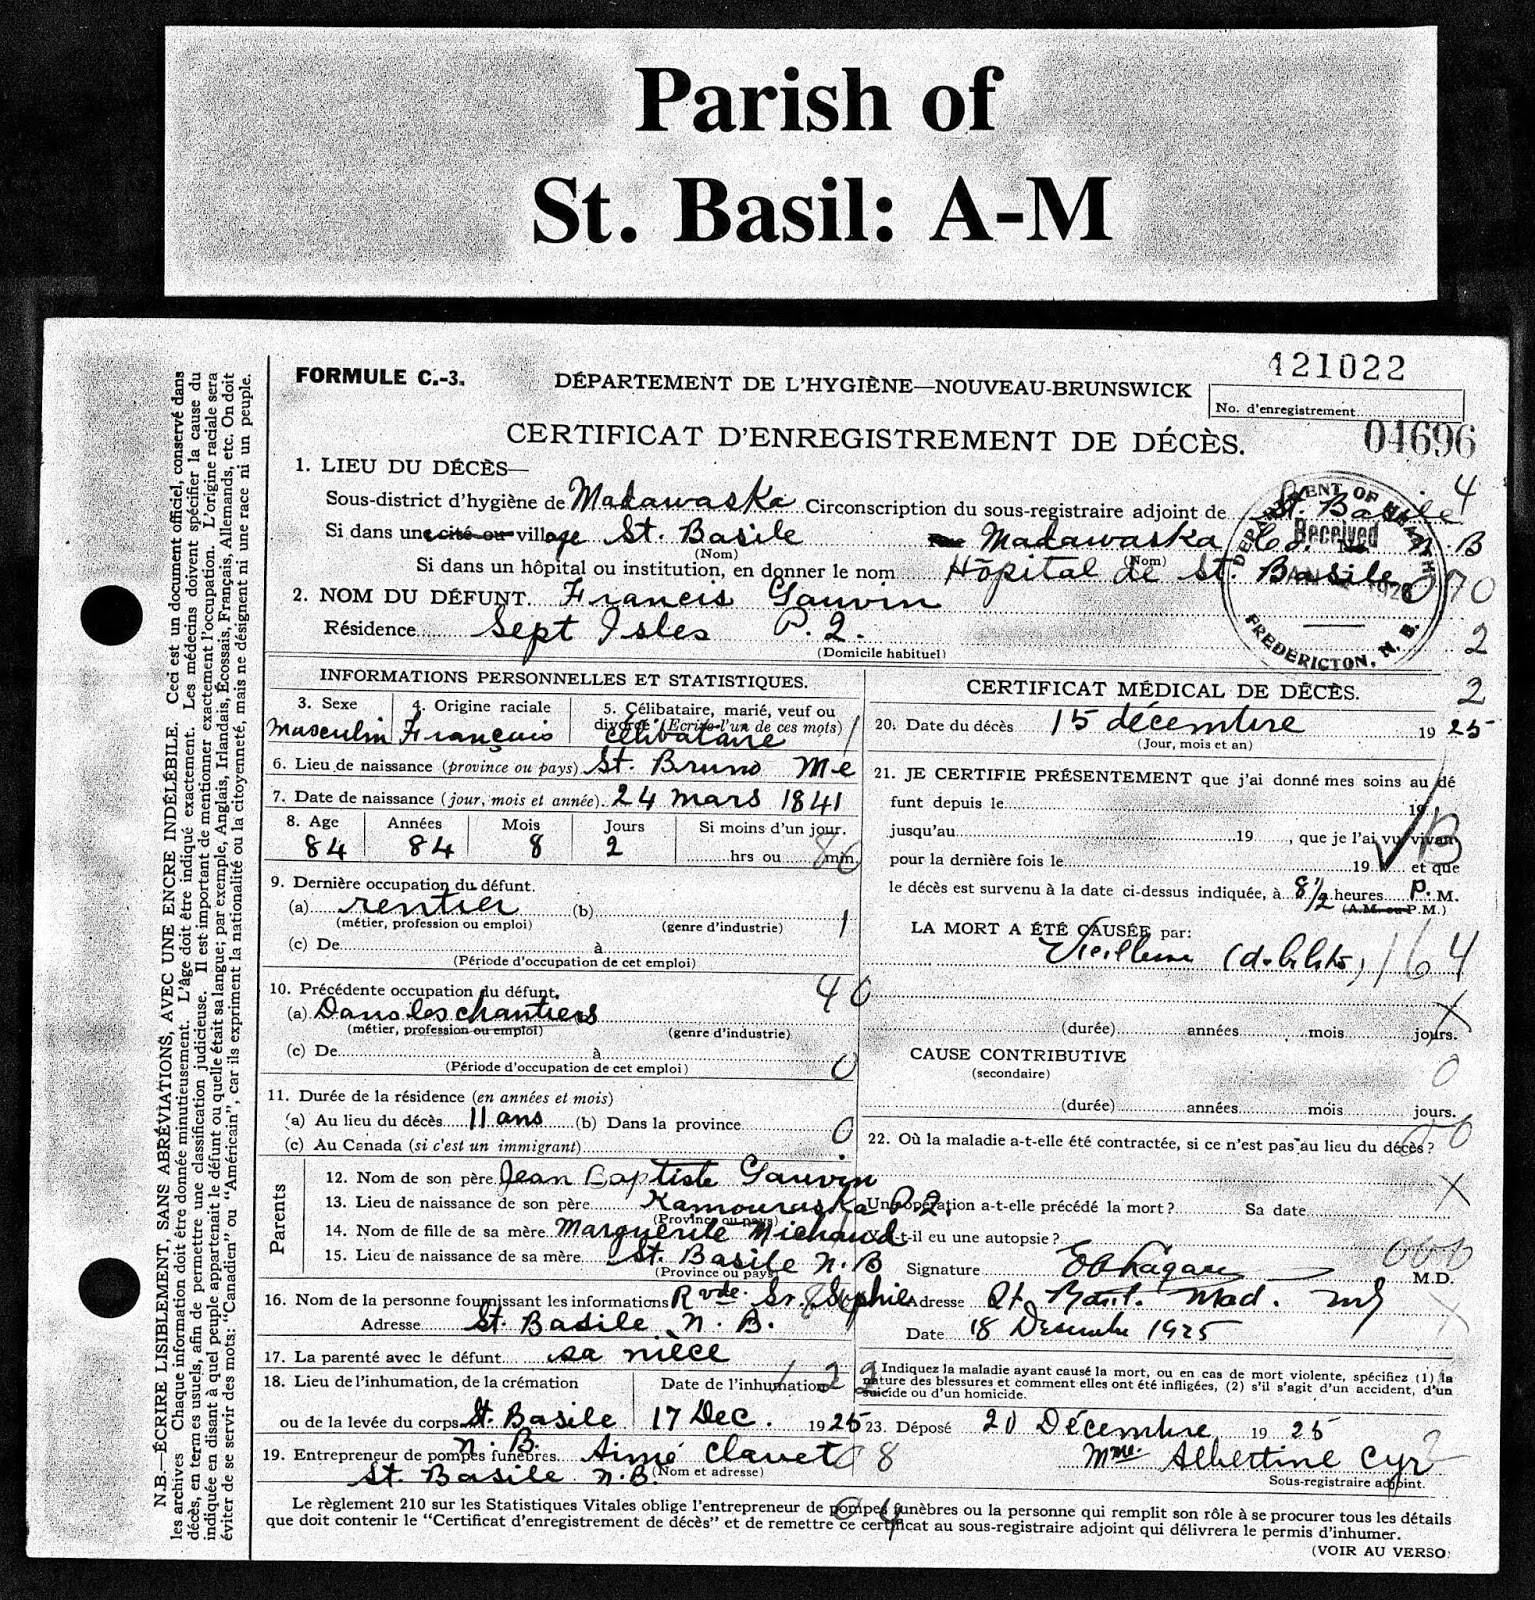 Parish of
St. Basil: A-M
421022
FORMULE C.-3.
DÉPARTEMENT DE L'HYGIÈNE—NOUVEAU-BRUNSWICK
No. d'enregistrement
04696
CERTIFICAT D'ENREGISTREMENT DE DÉCÈS.
1. LIEU DU DÉCÈS—
Sous-district d'hygiène de Madawaska Circonscription du sous-registraire adjoint de St. Basile 4
Si dans une cité ou village St. Basile Madawaska Co. N.B
(Nom) (Nom)
Si dans un hôpital ou institution, en donner le nom Hôpital de St. Basile 070
2. NOM DU DÉFUNT. Francis Gauvin
Résidence Sept Isles P.Q. 2
(Domicile habituel)
DEPARTMENT OF HEALTH
Received
FREDERICTON, N. B.
INFORMATIONS PERSONNELLES ET STATISTIQUES.
3. Sexe 4. Origine raciale 5. Célibataire, marié, veuf ou
divorcé (Ecrire l'un de ces mots)
Masculin Français Célibataire 1
6. Lieu de naissance (province ou pays) St. Bruno Me
7. Date de naissance (jour, mois et année). 24 mars 1841
8. Age Années Mois Jours Si moins d'un jour.
84 84 8 2 hrs ou min.
9. Dernière occupation du défunt.
(a) rentier (b) 1
(métier, profession ou emploi) (genre d'industrie)
(c) De à
(Période d'occupation de cet emploi)
10. Précédente occupation du défunt. 40
(a) Dans les chantiers
(métier, profession ou emploi) (genre d'industrie)
(c) De à 0
(Période d'occupation de cet emploi)
11. Durée de la résidence (en années et mois)
(a) Au lieu du décès 11 ans (b) Dans la province 0
(c) Au Canada (si c'est un immigrant)
Parents
12. Nom de son père Jean Baptiste Gauvin
13. Lieu de naissance de son père Kamouraska P.Q.
(Province ou pays)
14. Nom de fille de sa mère Marguerite Michaud
15. Lieu de naissance de sa mère St. Basile N.B
(Province ou pays)
16. Nom de la personne fournissant les informations Rvde. Sr. Sophie
Adresse St. Basile N. B.
17. La parenté avec le défunt sa nièce
18. Lieu de l'inhumation, de la crémation Date de l'inhumation
ou de la levée du corps St. Basile 17 Dec. 1925
N. B.
19. Entrepreneur de pompes funèbres Aimé Clavet 8
St. Basile N.B. (Nom et adresse)
CERTIFICAT MÉDICAL DE DÉCÈS. 2
20. Date du décès 15 décembre 1925
(Jour, mois et an)
21. JE CERTIFIE PRÉSENTEMENT que j'ai donné mes soins au dé
funt depuis le 19
jusqu'au 19 , que je l'ai vu vivant
pour la dernière fois le 19 et que
le décès est survenu à la date ci-dessus indiquée, à 8½ heures P. M.
(A.M. ou P.M.)
LA MORT A ÉTÉ CAUSÉE par:
Vieillesse (debilité) 164
(durée) années mois jours.
CAUSE CONTRIBUTIVE
(secondaire) 0
(durée) années mois jours.
22. Où la maladie a-t-elle été contractée, si ce n'est pas au lieu du décès?
Une opération a-t-elle précédé la mort? Sa date
-t-il eu une autopsie?
Signature M.D.
Adresse St. Basil. Mad.
Date 18 Décembre 1925
Indiquez la maladie ayant causé la mort, ou en cas de mort violente, spécifiez (1) la
nature des blessures et comment elles ont été infligées, (2) s'il s'agit d'un accident, d'un
suicide ou d'un homicide.
23. Déposé 20 Décembre 1925
Mme. Albertine Cyr
Sous-registraire adjoint.
Le règlement 210 sur les Statistiques Vitales oblige l'entrepreneur de pompes funèbres ou la personne qui remplit son rôle à se procurer tous les détails
que doit contenir le "Certificat d'enregistrement de décès" et de remettre ce certificat au sous-registraire adjoint qui délivrera le permis d'inhumer.
(VOIR AU VERSO
N.B.—ÉCRIRE LISIBLEMENT, SANS ABRÉVIATIONS, AVEC UNE ENCRE INDÉLÉBILE. Ceci est un document officiel, conservé dans
les archives Chaque information doit être donnée minutieusement. L'âge doit être indiqué exactement. Les médecins doivent spécifier la cause du
décès, en termes usuels, afin de permettre une classification judicieuse. Il est important de mentionner exactement l'occupation. L'origine raciale sera
indiquée en disant à quel peuple appartenait le défunt ou quelle était sa langue; par exemple, Anglais, Irlandais, Écossais, Français, Allemands, etc. On doit
éviter de se servir des mots: "Canadien" ou "Américain", car ils expriment la nationalité ou la citoyenneté, mais ne désignent ni une race ni un peuple.